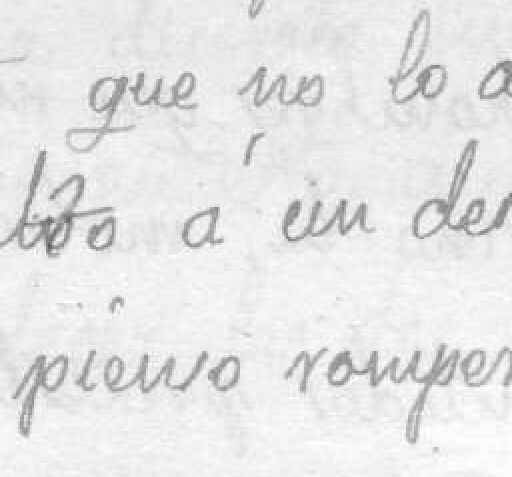 que no lo a
a un der
pienso romper